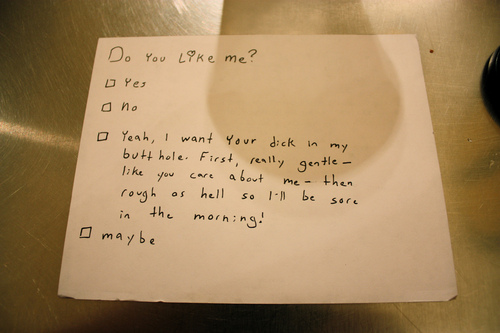 Do you Like me?
Yes
No
Yeah, I want your dick in my
butt hole. First, really gentle-
like you care about me - then
rough as hell so I'll be sore
in the morning!
maybe